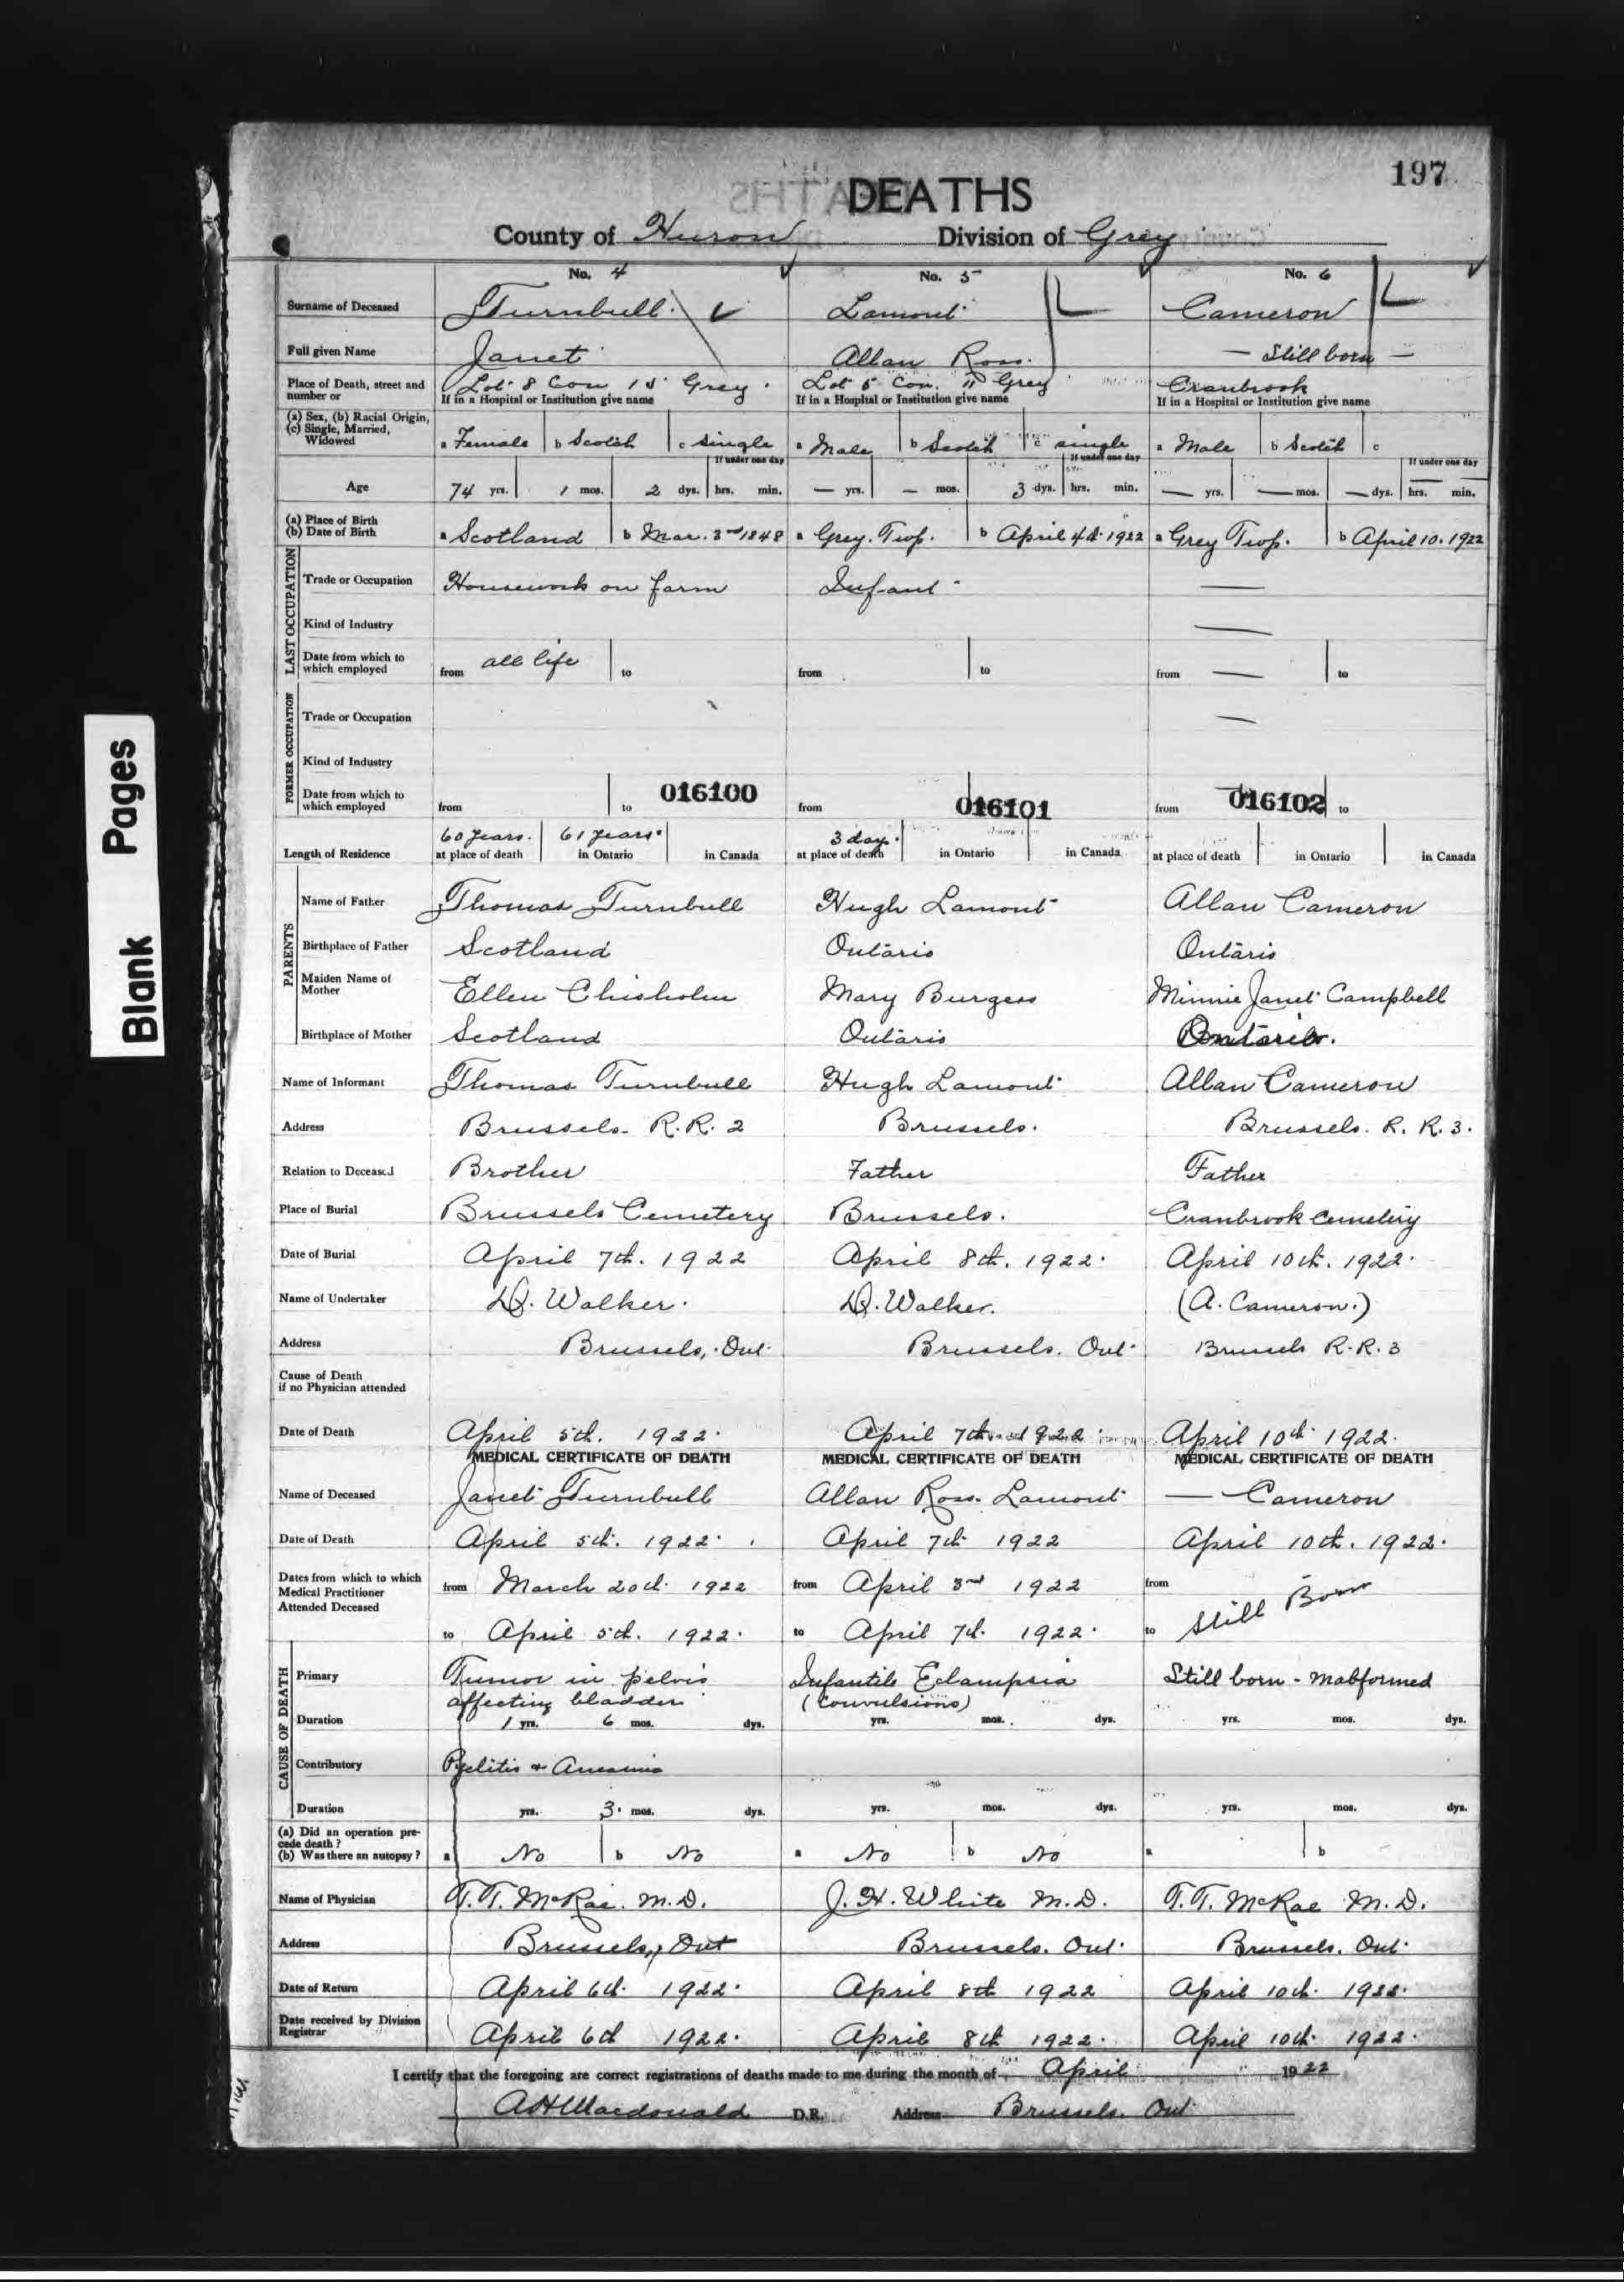 197
DEATHS
County of Huron Division of Grey
No. 4 No. 5 No. 6
Surname of Deceased Turnbull Lamont Cameron
Full given Name Janet Allan Ross. — Still born —
Place of Death, street and number or Lot 8 Con 15 Grey. Lot 5 Con. 11 Grey Cranbrook
If in a Hospital or Institution give name If in a Hospital or Institution give name If in a Hospital or Institution give name
(a) Sex, (b) Racial Origin, (c) Single, Married, Widowed a Female b Scotch c single a Male b Scotch c single a Male b Scotch c
If under one day If under one day If under one day
Age 74 yrs. 1 mos. 2 dys. hrs. min. — yrs. — mos. 3 dys. hrs. min. — yrs. — mos. — dys. hrs. min.
(a) Place of Birth (b) Date of Birth a Scotland b Mar. 3rd 1848 a Grey. Twp. b April 4th 1922 a Grey Twp. b April 10. 1922
LAST OCCUPATION
Trade or Occupation Housework on farm Infant —
Kind of Industry —
Date from which to which employed from all life to from to from — to
FORMER OCCUPATION
Trade or Occupation —
Kind of Industry
Date from which to which employed from to 016100 from 016101 from 016102 to
Length of Residence 60 years. at place of death 61 years. in Ontario in Canada 3 day. at place of death in Ontario in Canada at place of death in Ontario in Canada
PARENTS
Name of Father Thomas Turnbull Hugh Lamont Allan Cameron
Birthplace of Father Scotland Ontario Ontario
Maiden Name of Mother Ellen Chisholm Mary Burgess Minnie Janet Campbell
Birthplace of Mother Scotland Ontario Ontario.
Name of Informant Thomas Turnbull Hugh Lamont Allan Cameron
Address Brussels. R.R. 2 Brussels. Brussels. R. R. 3.
Relation to Deceased Brother Father Father
Place of Burial Brussels Cemetery Brussels. Cranbrook Cemetery
Date of Burial April 7th. 1922 April 8th. 1922. April 10th. 1922.
Name of Undertaker Walker. Walker. (A. Cameron.)
Address Brussels, Ont. Brussels. Ont. Brussels R.R. 3
Cause of Death if no Physician attended
Date of Death April 5th. 1922. April 7th 1922. April 10th 1922.
MEDICAL CERTIFICATE OF DEATH MEDICAL CERTIFICATE OF DEATH MEDICAL CERTIFICATE OF DEATH
Name of Deceased Janet Turnbull Allan Ross. Lamont — Cameron
Date of Death April 5th. 1922. April 7th 1922 April 10th. 1922.
Dates from which to which Medical Practitioner Attended Deceased from March 20th. 1922 from April 3rd 1922 from
to April 5th. 1922. to April 7th. 1922. to Still Born
CAUSE OF DEATH
Primary Tumor in pelvis Infantile Eclampsia Still born - malformed
affecting bladder (Convulsions)
Duration 1 yrs. 6 mos. dys. yrs. mos. dys. yrs. mos. dys.
Contributory Pyelitis + Anaemia
Duration yrs. 3. mos. dys. yrs. mos. dys. yrs. mos. dys.
(a) Did an operation precede death? (b) Was there an autopsy? a No b No a No b No a b
Name of Physician T. T. McRae. M.D. J. H. White M.D. T. T. McRae M.D.
Address Brussels, Ont Brussels. Ont. Brussels. Ont.
Date of Return April 6th. 1922. April 8th 1922 April 10th. 1922.
Date received by Division Registrar April 6th 1922. April 8th 1922. April 10th. 1922.
I certify that the foregoing are correct registrations of deaths made to me during the month of April 1922
A H Macdonald D.R. Address Brussels. Ont
Blank Pages